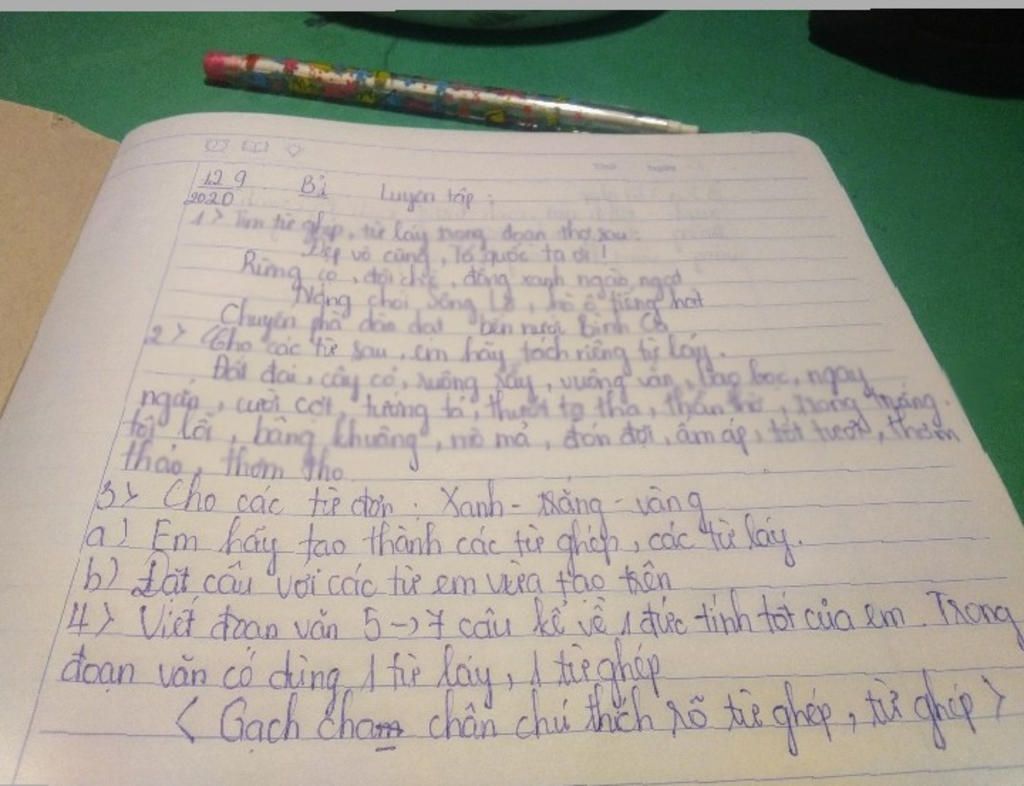 12 9
2020
Bài Luyện tập :
1> Tìm từ ghép, từ láy trong đoạn thơ sau:
Đẹp vô cùng, Tổ quốc ta ơi !
Rừng cọ, đồi chè, đồng xanh ngào ngạt
Nắng chói Sông Lô, hò ô tiếng hát
Chuyến phà dào dạt bến nước Bình Ca
2> Cho các từ sau, em hãy tách riêng từ láy.
Đất đai, cây cỏ, ruộng rẫy, vuông vắn, bao bọc, ngay
ngắn, cười cợt, tướng tá, tha, trong trắng.
tội lỗi, bâng khuâng, mồ mả, đón đợi, ấm áp, tốt tươi, thơm
thảo, thơm tho
3> Cho các từ đơn : Xanh - trắng - vàng
a) Em hãy tạo thành các từ ghép, các từ láy.
b) Đặt câu với các từ em vừa tạo trên
4> Viết đoạn văn 5 -> 7 câu kể về 1 đức tính tốt của em. Trong
đoạn văn có dùng 1 từ láy, 1 từ ghép
< Gạch chân chú thích rõ từ ghép, từ ghép >